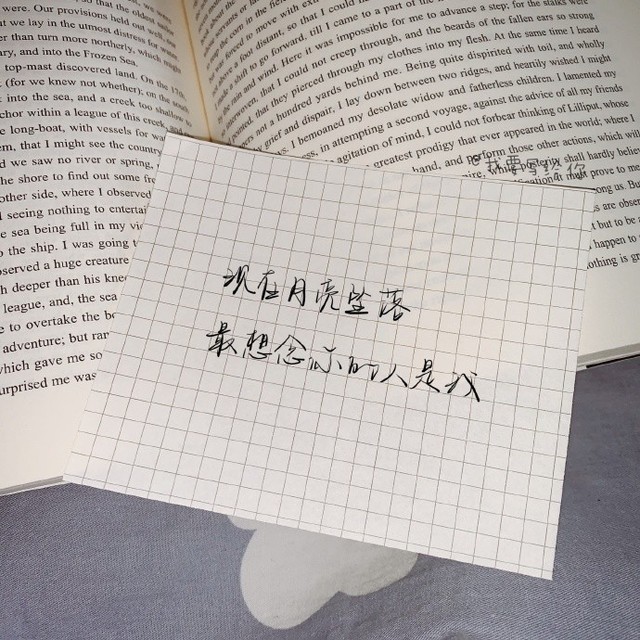 so that the oldest
were. Our provisions held out well, our
at we lay in the utmost distress for water.
than turn more northerly, which might
ary, and into the Frozen Sea.
top-mast discovered land. On the 17th
t (for we knew not whether); on the south
t into the sea, and a creek too shallow to
chor within a league of this creek
e long-boat, with vessels for wa
em, that I might see the country
d we saw no river or spring,
he shore to find out some fre
other side, where I observed
seeing nothing to entertai
e sea being full in my vie
o the ship. I was going t
bserved a huge creature
h deeper than his knee
league, and, the sea
e to overtake the bo
adventure; but ran
which gave me so
urprised me was
servants or
the corn in the field
forced to move with extr
a foot distant, so that I could
a shift to go forward, till I came to a part of the
rain and wind. Here it was impossible for me to advance a step; for the stalks were
interwoven, that I could not creep through, and the beards of the fallen ears so strong
that they pierced through my clothes into my flesh. At the same time I heard
not a hundred yards behind me. Being quite dispirited with toil, and wholly
grief and dispair, I lay down between two ridges, and heartily wished I might
I bemoaned my desolate widow and fatherless children. I lamented my
in attempting a second voyage, against the advice of all my friends
agitation of mind, I could not forbear thinking of Lilliput, whose
greatest prodigy that ever appeared in the world; where I
hand, and perform those other actions, which
shall hardly believe
might prove to me
ong us. But
as are obser
but to be
happen to
othing is gr
我要写给你
现在月亮坠落
最想念你的人是我